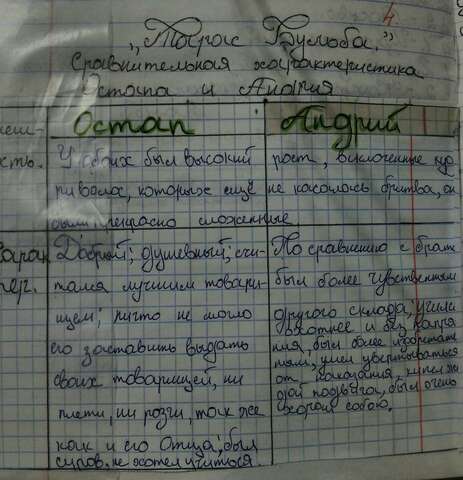 4
„Тарас Бульба."
Сравнительная характеристика
Остапа и Андрия
Остап Андрий
внеш-
ность.
У обоих был высокий рост,
волос, которых ещё не касалась бритва, он
были прекрасно сложенные.
Харак
тер.
Добрый; душевный; счи-
тался лучшим товари-
щем; ничто не могло
его заставить выдать
своих товарищей, ни
плети, ни розги, так же
как и его Отца; был
суров. не хотел учиться.
По сравнению с брат
был более чувственным
другого склада; учился
охотнее и без напря
ния, был более изобретат
ным, умел увертываться
от наказания, кипел жа
дой подвига, был очень
хорош собою.